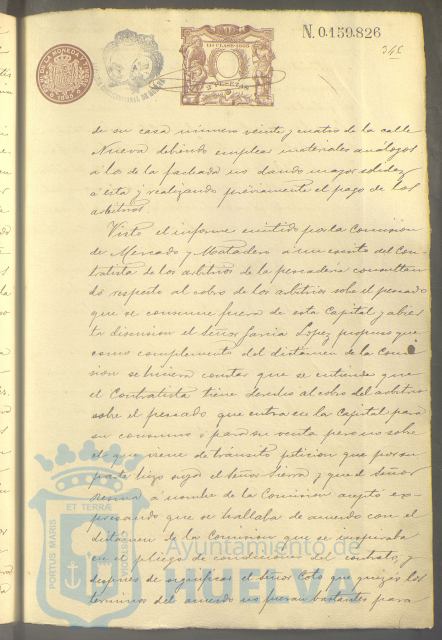 N. 0.159.826
11ª CLASE-1885
3 PESETAS
346
de su casa número veinte y cuatro de la calle
Nueva debiendo emplear materiales análogos
a los de la fachada no dando mayor solidez
a esta y realizando préviamente el pago de los
arbitrios.
Visto el informe emitido por la Comision
de Mercado y Matadero a un escrito del Con-
tratista de los arbitrios de la pescaderia consultan
do respecto al cobro de los arbitrios sobre el pescado
que se consume fuera de esta Capital y abier
ta discusion el Señor Garcia Lopez propuso que
como complemento del dictámen de la Comi
sion se hiciera constar que se entiende que
el Contratista tiene derecho al cobro del arbitrio
sobre el pescado que entra en la Capital para
su consumo ó para su venta pero no sobre
el que viene de tránsito peticion que por su
parte hizo suya el Señor Sierra y que el Señor
a nombre de la Comision aceptó ex
presando que se hallaba de acuerdo con el
dictámen de la Comision que se inspiraba
en el pliego de condiciones del contrato, y
despues de significar el Señor Coto que quizás los
terminos del acuerdo no fueran bastantes para
PORTUS MARIS
ET TERRÆ
CUSTODIA
Ayuntamiento de
HUELVA